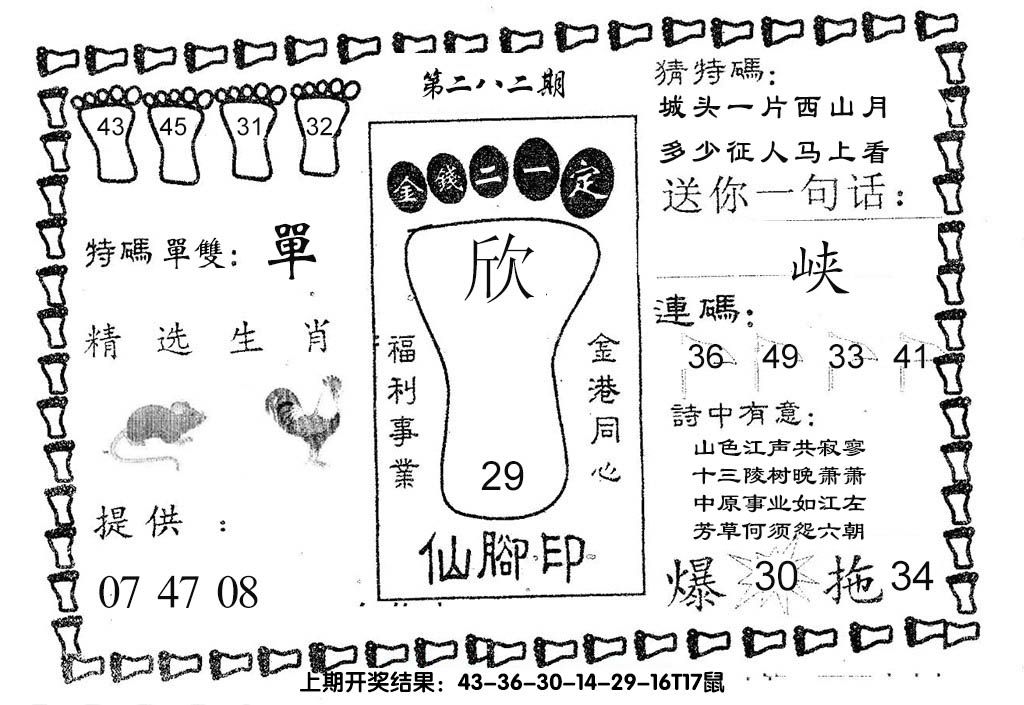 第二八二期
43 45 31 32
特碼單雙：單
精选生肖
提供：
07 47 08
金錢二一定
欣
福利事業
金港同心
29
仙腳印
猜特碼：
城头一片西山月
多少征人马上看
送你一句话：
峡
連碼：
36 49 33 41
詩中有意：
山色江声共寂寥
十三陵树晚萧萧
中原事业如江左
芳草何须怨六朝
爆 30 拖 34
上期开奖结果：43-36-30-14-29-16T17鼠